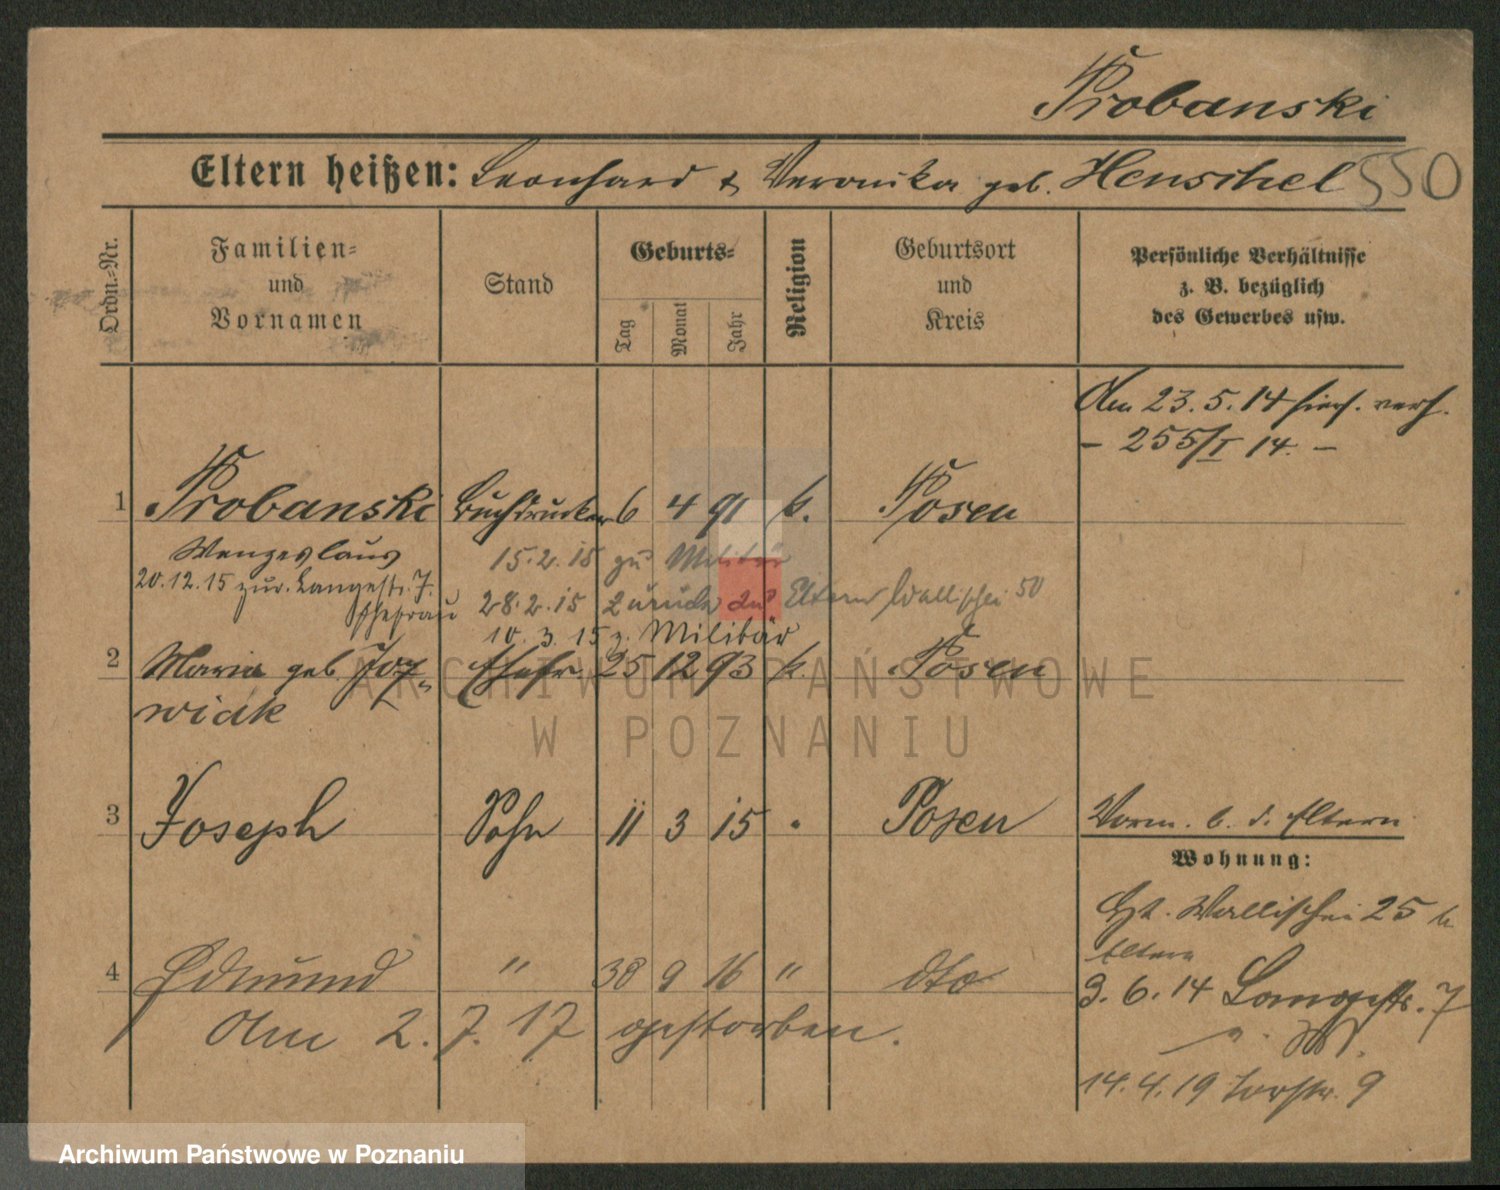 Probanski
Eltern heißen: Leonhard & Veronika geb. Henschel 550
Ordn.-Nr.
Familien-
und
Vornamen
Stand
Geburts-
Tag
Monat
Jahr
Religion
Geburtsort
und
Kreis
Persönliche Verhältnisse
z. B. bezüglich
des Gewerbes usw.
Am 23.5.14 hier verh.
- 255/I 14. -
1 Probanski Buchdrucker 6 4 91 k. Posen
Wenzeslaus 15.2.15 zu Militär
20.12.15 zur. Langestr. 7. 28.2.15 zurück zu Eltern Wallischei 50
Ehefrau 10.3.15 z. Militär
2 Maria geb. Joz- Ehefr. 25 12 93 k. Posen
wiak
3 Joseph Sohn 11 3 15 " Posen
Vorm. b. d. Eltern
Wohnung:
Wallischei 25 b.
Eltern
4 Edmund " 9 16 " dto
3.6.14 Langestr. 7
Am 2.7.17 gestorben.
14.4.19 Torstr. 9
ARCHIWUM PAŃSTWOWE
W POZNANIU
Archiwum Państwowe w Poznaniu